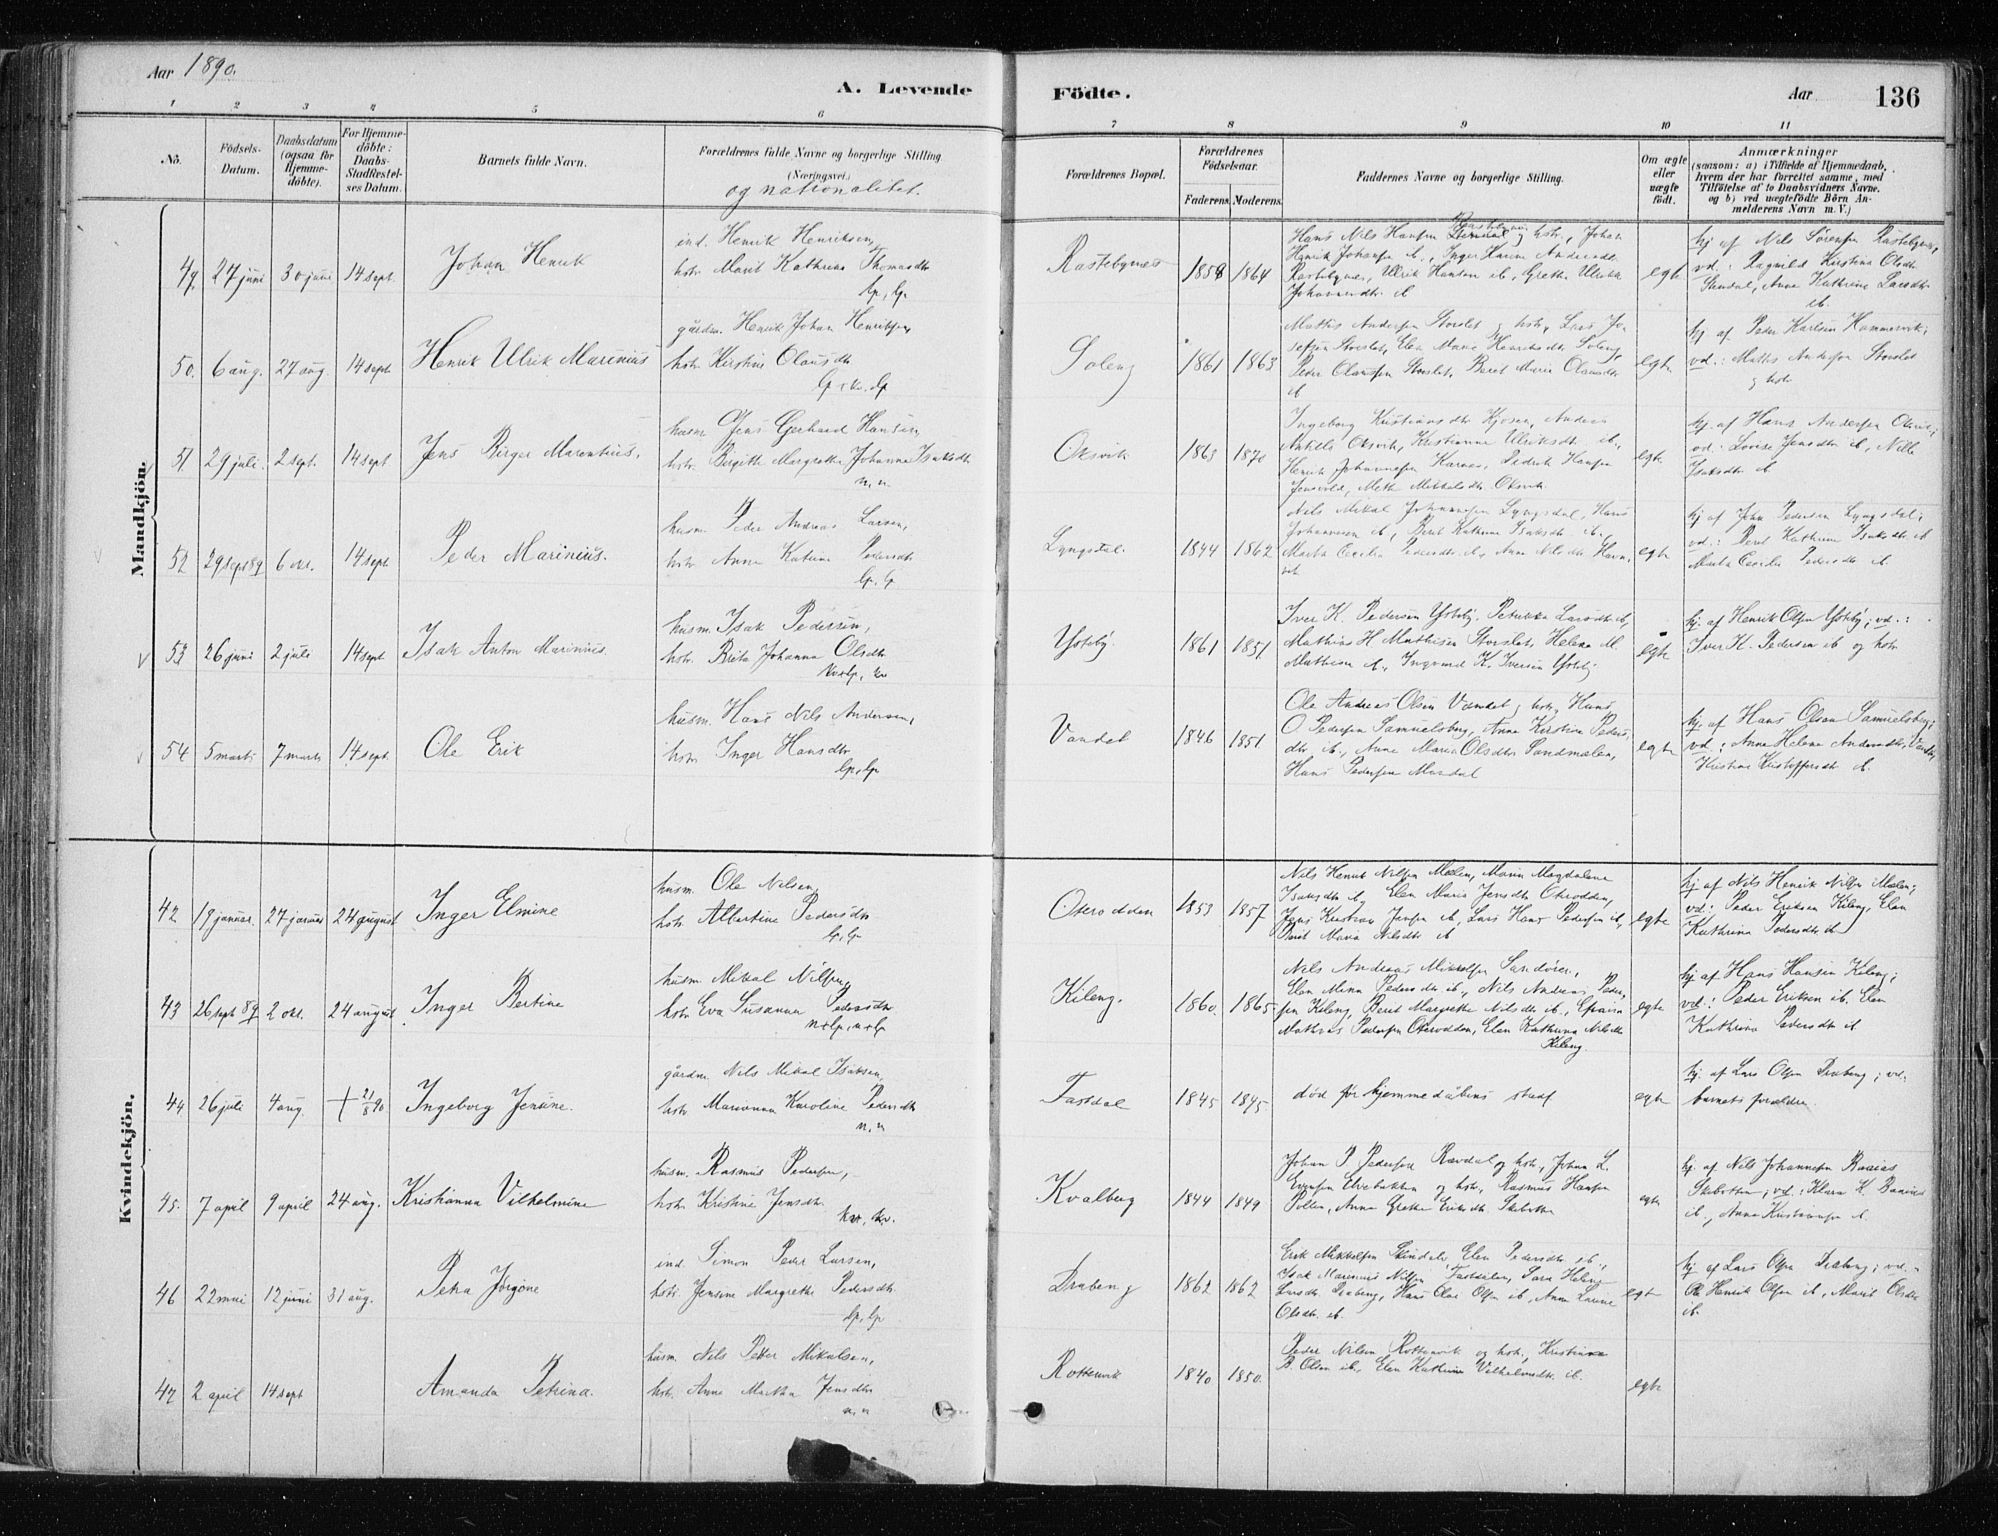 Aar 1890.
A. Levende Födte.
Aar
136
1 2 3 4 5 6 7 8 9 10 11
No.
Födsels-Datum.
Daabsdatum (ogsaa for Hjemme-döbte).
For Hjemme-döbte: Daabs-Stadfæstel-ses Datum.
Barnets fulde Navn.
Forældrenes fulde Navne og borgerlige Stilling (Næringsvei.)
og nationalitet.
Forældrenes Bopæl.
Forældrenes Födselsaar.
Faderens. Moderens.
Faddernes Navne og borgerlige Stilling.
Om ægte eller uægte födt.
Anmærkninger
(saasom: a) i Tilfælde af Hjemmedaab,
hvem der har forrettet samme, med
Tilföielse af to Daabsvidners Navne.
og b) ved uægtefödte Börn An-
melderens Navn m. V.)
Mandkjön.
49. 27 juni 30 juni 14 sept. Johan Henrik
ind. Henrik Henriksen,
hstr. Marit Kathrina Thomasdtr
lp, lp.
Rastebynes 1858 1864
Hans Nils Hansen og hstr., Johan
Henrik Johansen ib., Inger Karen Andersdtr
Rastebynes, Ulrik Hansen ib., Grethe Ulrikke
Johannesdtr. ib
egte
hj af Nils Sørensen Rastebynes,
vd.: Ragnild Kirstina Olsdtr.
Sandal, Anne Kathrine Larsdtr
ib.
50. 6 aug. 27 aug. 14 sept Henrik Ulrik Marinius
gårdm. Henrik Johan Henriksen,
hstr. Kirstine Olausdtr
lp+kv. lp
Soleng 1861 1863
Mathis Andersen Storslet og hstr, Lars Jo-
sefsen Storslet, Elen Marie Henriksdtr Soleng,
Peder Olaussen Storslet, Beret Marie Olausdtr
ib
egte
hj af Peder Karlsen Hammervik;
vd.: Mathis Andersen Storslet
og hstr
51 29 juli. 2 sept. 14 sept Jens Birger Marentius.
husm. Jens Gerhard Hansen,
hstr. Birgitte Margrethe Johanna Isaksdtr
n, n
Oksvik 1863 1870
Ingeborg Kristiansdtr Kjosen, Anders
Oksvik, Kristianne Ulriksdtr ib.,
Henrik Johannesen Karnes, Hansen
Mette Mikkelsdtr Oksvik
egte
hj. af Hans Andersen Oksvik;
vd.: Lovise Jensdtr ib, Nille
Isaksdtr ib
52 29 sept 89 6 okt. 14 sept Peder Marinius.
husm. Peder Andreas Larsen,
hstr. Anne Katrine Pedersdtr
lp, lp
Lyngsdal. 1844 1862
Nils Mikal Johannesen Lyngsdal, Hans
Johannesen ib, Beret Kathrine Isaksdtr ib.
Marta Cecilie Pedersdtr ib, Anne Nilsdtr Havn-
vik
egte
hj af John Pedersen Lyngsdal;
vd.: Beret Kathrine Isaksdtr ib
Marta Cecilie Pedersdtr ib.
53 26 juni 2 juli 14 sept Isak Anton Marinius.
husm. Isak Pedersen,
hstr. Brita Johanna Olsdtr
kv+lp, kv
Ysteby. 1861 1851
Iver K. Pedersen Ysteby, Petrikka Larsdtr ib,
Mathias H Mathisen Storslet, Helene M.
Mathisen ib, Ingvard K. Iversen Ysteby
egte
hj. af Henrik Olsen Ysteby; vd.:
Iver K. Pedersen ib og hstr
54 5 marts 7 marts 14 sept. Ole Erik
husm. Hans Nils Andersen,
hstr Inger Hansdtr
lp, lp
Vandet 1846 1851
Ole Andreas Olsen Vandet og hstr, Hans
O Pedersen Samuelsberg, Anne Kirstine Peders-
dtr ib., Anne Maria Olsdtr Sandmælen,
Hans Pedersen Mandal
egte
hj. af Hans Olsen Samuelsberg;
vd.: Anne Helene Andersdtr Vandet,
Kristine Kristoffersdtr ib.
Kvindekjön.
42 19 januar. 27 januar 24 august Inger Elmine
husm. Ole Nilsen,
hstr. Albertine Pedersdtr
lp, lp
Oterodden 1853 1857
Nils Henrik Nilsen Mælen, Maren Magdalene
Isaksdtr ib, Elen Marie Jensdtr Oterodden,
Jens Kristian Jensen ib, Lars Hans Pedersen ib,
Berit Maria Nilsdtr ib
egte
hj af Nils Henrik Nilsen Mælen;
vd.: Peder Eriksen Kileng, Elen
Kathrina Pedersdtr ib
43 26 sept 89 2 okt. 24 august Inger Bertine
husm. Mikal Nilsen,
hstr. Eva Susanna Pedersdtr
n+lp, n+lp
Kileng. 1860. 1865
Nils Andreas Mikkelsen Sandøren,
Elen Minna Pedersdtr ib., Nils Andreas Peder-
sen Kileng, Beret Margrethe Nilsdtr ib., Efraim
Mathias Pedersen Oterodden, Elen Kathrina Nilsdtr
Kileng.
egte
hj. af Hans Hansen Kileng;
vd.: Peder Eriksen ib. Elen
Kathrina Pedersdtr ib
44 26 juli 4 aug. + 21/8 90 Ingeborg Jensine.
gårdm. Nils Mikal Isaksen,
hstr. Marianna Karoline Pedersdtr
n, n
Fastdal 1845 1845
død før hjemmedåbens stadf
egte
hj. af Lars Olsen Draberg; vd.
barnets forældre.
45. 7 april 9 april 24 aug. Kristianna Vilhelmine
husm. Rasmus Pedersen,
hstr. Kristine Jensdtr.
kv, kv.
Kvalberg 1844 1849
Johan P. Pedersen Rævdal og hstr, Johan L.
Evensen Elvebakken og hstr, Rasmus Hansen
Pollen, Anna Grethe Eriksdtr. Skibotten
egte
hj. af Nils Johannesen
Skibotten; vd.: Klara K.
ib., Anne Kristiansen ib.
46 22 mai 12 juni 31 aug. Petra Jørgine
ind. Simon Peder Larsen,
hstr. Jensine Margrethe Pedersdtr.
lp, lp
Draberg 1862 1862
Erik Mikkelsen Skindalv, Elen Pedersdtr ib.,
Isak Marenius Nilsen Fastdalen, Sara Helene
Larsdtr. Draberg, Hans Olai Olsen ib, Anna Lovise
Olsdtr. ib.
egte
hj af Lars Olsen Draberg; vd.:
Ole Henrik Olsen ib, Marit Olsdtr
ib.
47 2 april 14 sept Amanda Petrina.
husm. Nils Petter Mikalsen,
hstr. Anne Martha Jensdtr
n, n
Rottenvik 1840 1850.
Peder Nilsen Rottenvik og hstr., Kristine
B. Olsen ib., Elen Kathrine Vilhelmsdtr ib.
egte